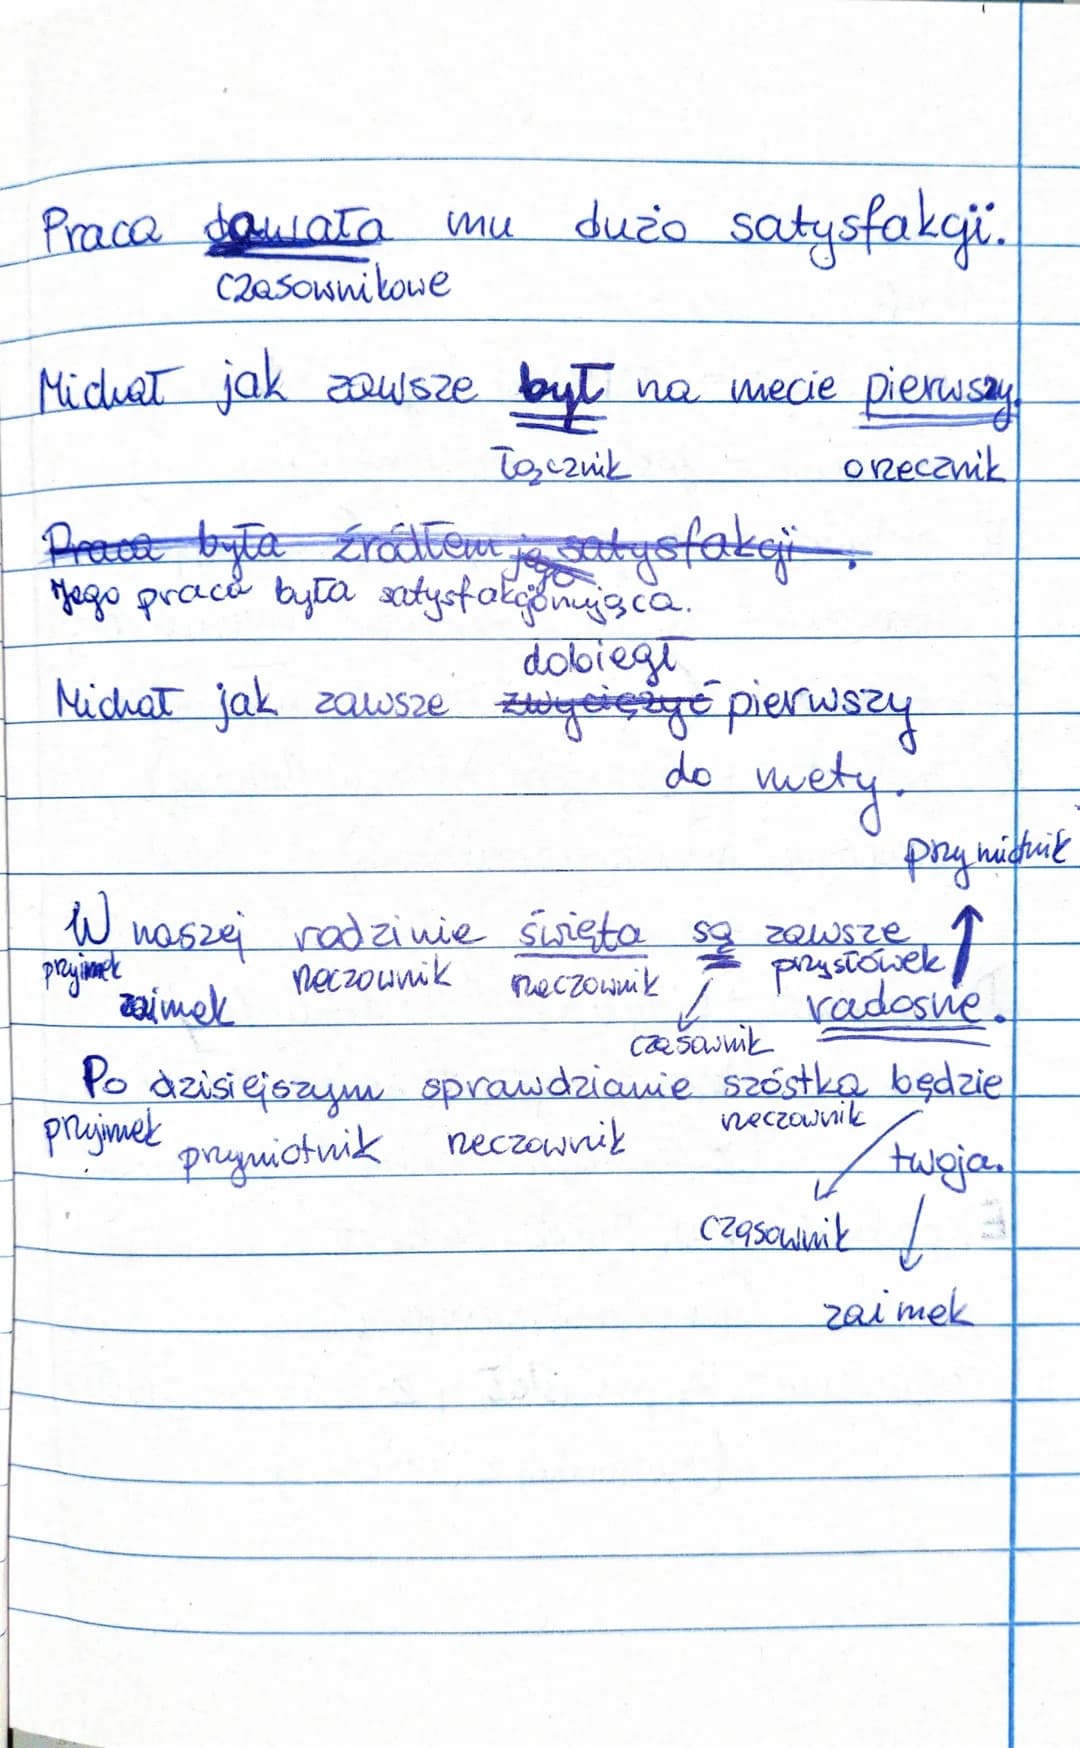 Praca dawała mu dużo satysfakcji.
czasownikowe
Michał jak zawsze był na mecie pierwszy.
łącznik orzecznik
Praca była źródłem jego satysfakcji.
Jego praca była satysfakcjonująca.
dobiegł
Michał jak zawsze zwyciężył pierwszy
do mety.
przymiotnik
W naszej rodzinie święta są zawsze
przyimek rzeczownik rzeczownik przysłówek
zaimek radosne.
czasownik
Po dzisiejszym sprawdzianie szóstka będzie
przyimek przymiotnik rzeczownik rzeczownik
twoja.
czasownik
zaimek